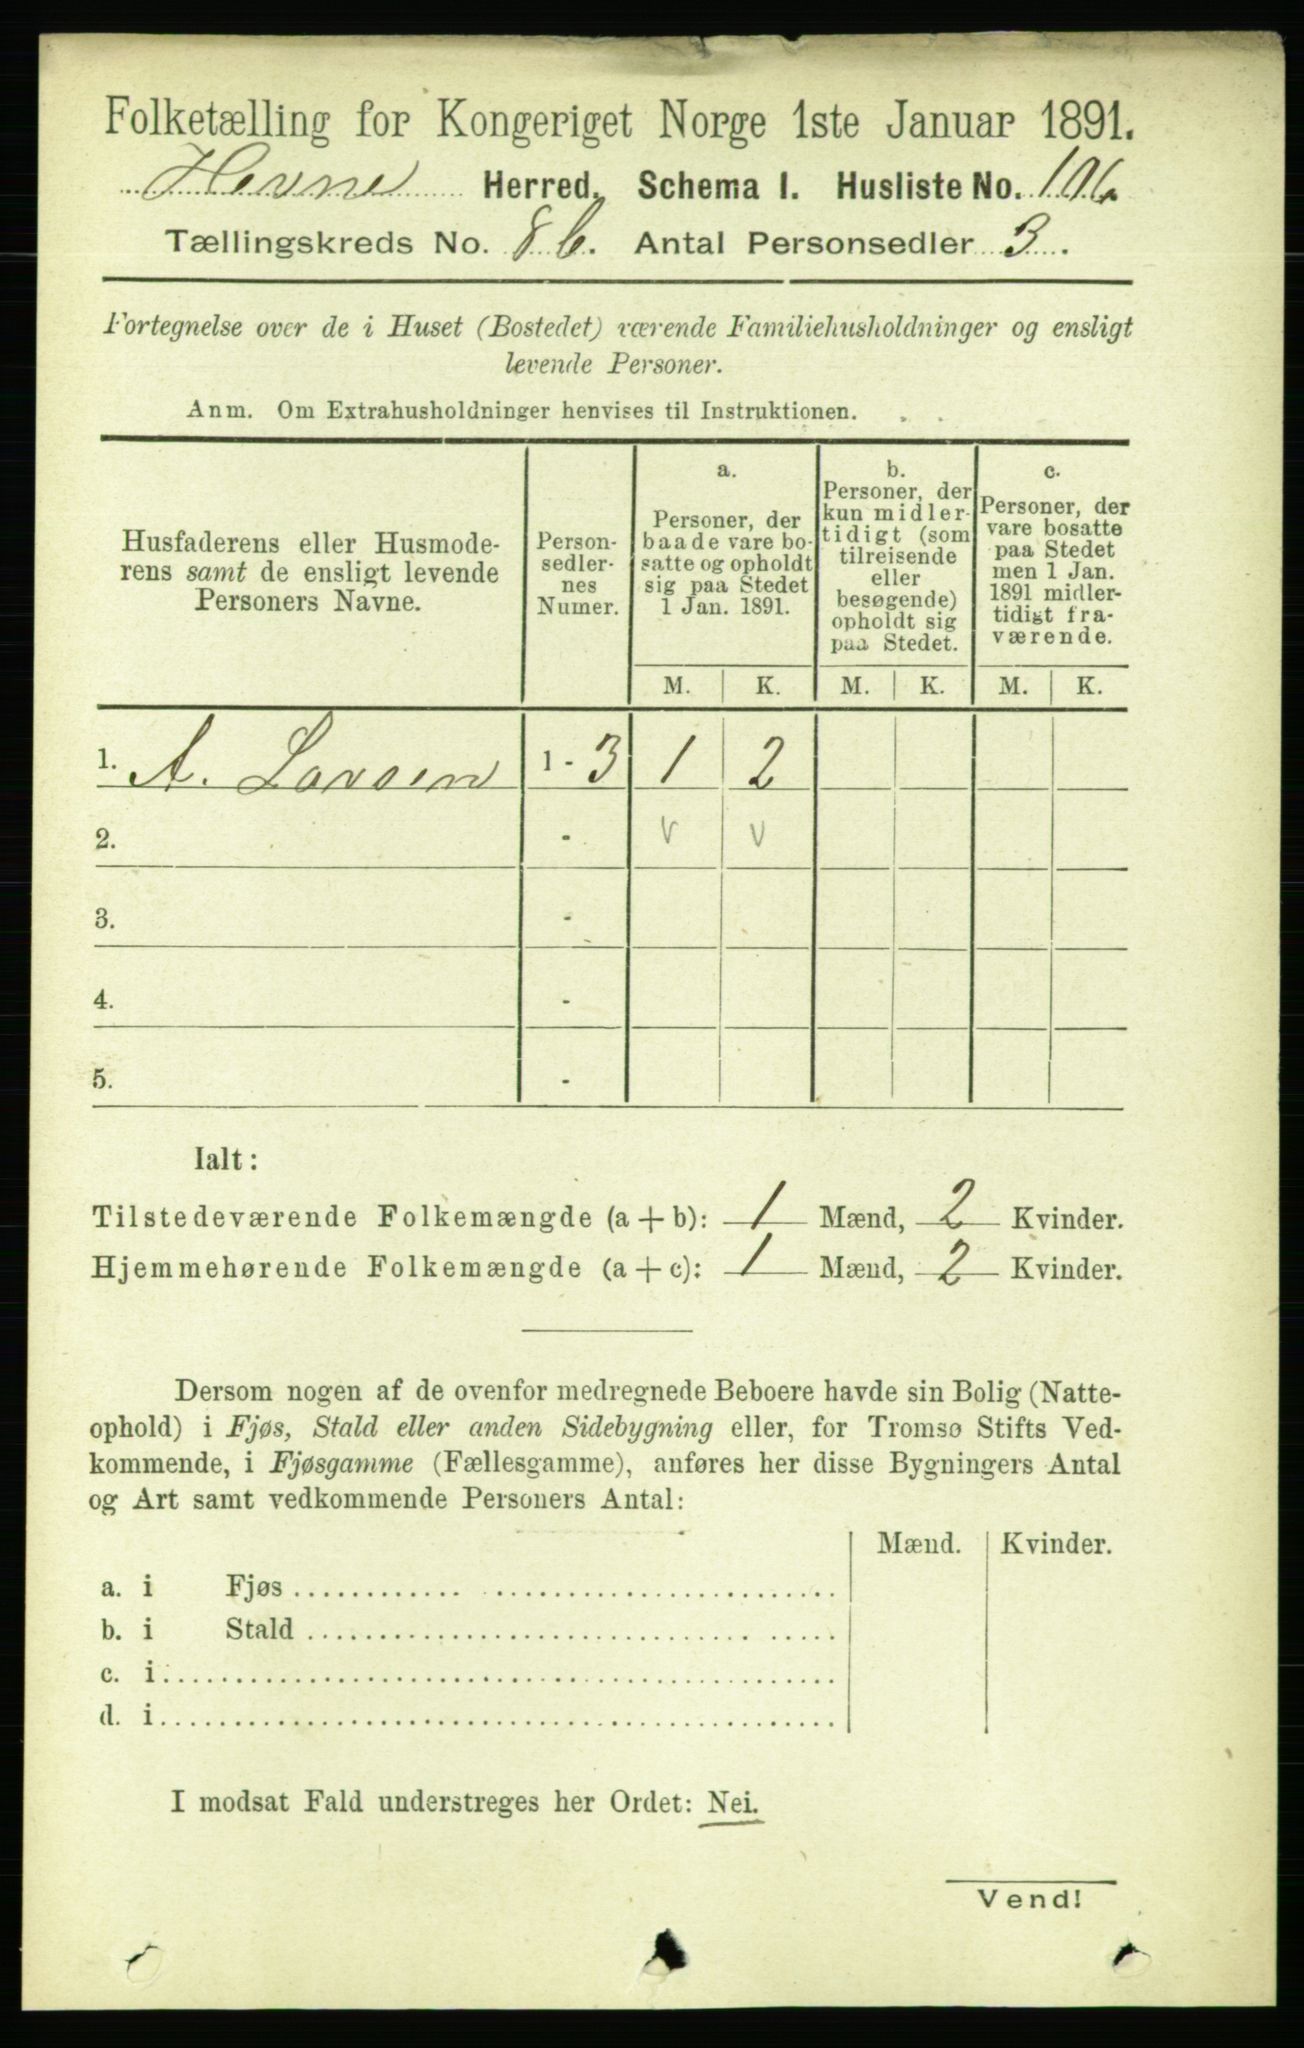 Folketælling for Kongeriget Norge 1ste Januar 1891.
Hevne Herred. Schema I. Husliste No. 106
Tællingskreds No. 8 b. Antal Personsedler 3.
Fortegnelse over de i Huset (Bostedet) værende Familiehusholdninger og ensligt
levende Personer.
Anm. Om Extrahusholdninger henvises til Instruktionen.
Husfaderens eller Husmode-
rens samt de ensligt levende
Personers Navne.
Person-
sedler-
nes
Numer.
a.
Personer, der
baade vare bo-
satte og opholdt
sig paa Stedet
1 Jan. 1891.
b.
Personer, der
kun midler-
tidigt (som
tilreisende
eller
besøgende)
opholdt sig
paa Stedet.
c.
Personer, der
vare bosatte
paa Stedet
men 1 Jan.
1891 midler-
tidigt fra-
værende.
M. K. M. K. M. K.
1. A. Larsen 1 - 3 1 2
2. - v v
3. -
4. -
5. -
Ialt:
Tilstedeværende Folkemængde (a + b): 1 Mænd, 2 Kvinder.
Hjemmehørende Folkemængde (a + c): 1 Mænd, 2 Kvinder.
Dersom nogen af de ovenfor medregnede Beboere havde sin Bolig (Natte-
ophold) i Fjøs, Stald eller anden Sidebygning eller, for Tromsø Stifts Ved-
kommende, i Fjøsgamme (Fællesgamme), anføres her disse Bygningers Antal
og Art samt vedkommende Personers Antal:
Mænd. Kvinder.
a. i Fjøs
b. i Stald
c. i
d. i
I modsat Fald understreges her Ordet: Nei.
Vend!